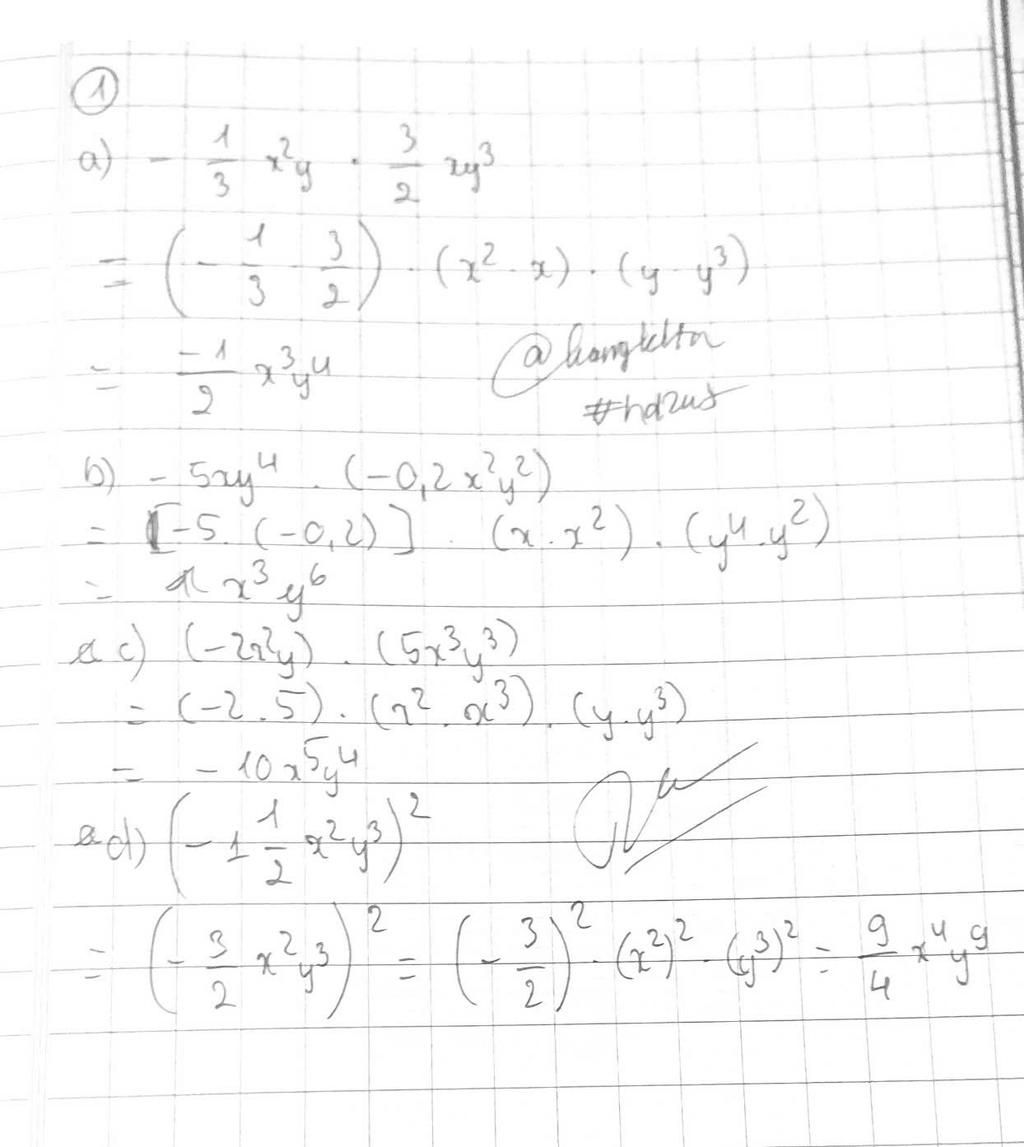 ①
a) - 1/3 x²y . 3/2 xy³
= (- 1/3 . 3/2) . (x² . x) . (y . y³)
= -1/2 x³y⁴
#hd247
b) - 5xy⁴ . (-0,2x²y²)
= [-5. (-0,2)] . (x . x²) . (y⁴ . y²)
= x³y⁶
c) (-2x²y) . (5x³y³)
= (-2 . 5) . (x² . x³) . (y . y³)
= - 10x⁵y⁴
d) (- 1 1/2 x²y³)²
= (- 3/2 x²y³)² = (- 3/2)² . (x²)² . (y³)² = 9/4 x⁴y⁹